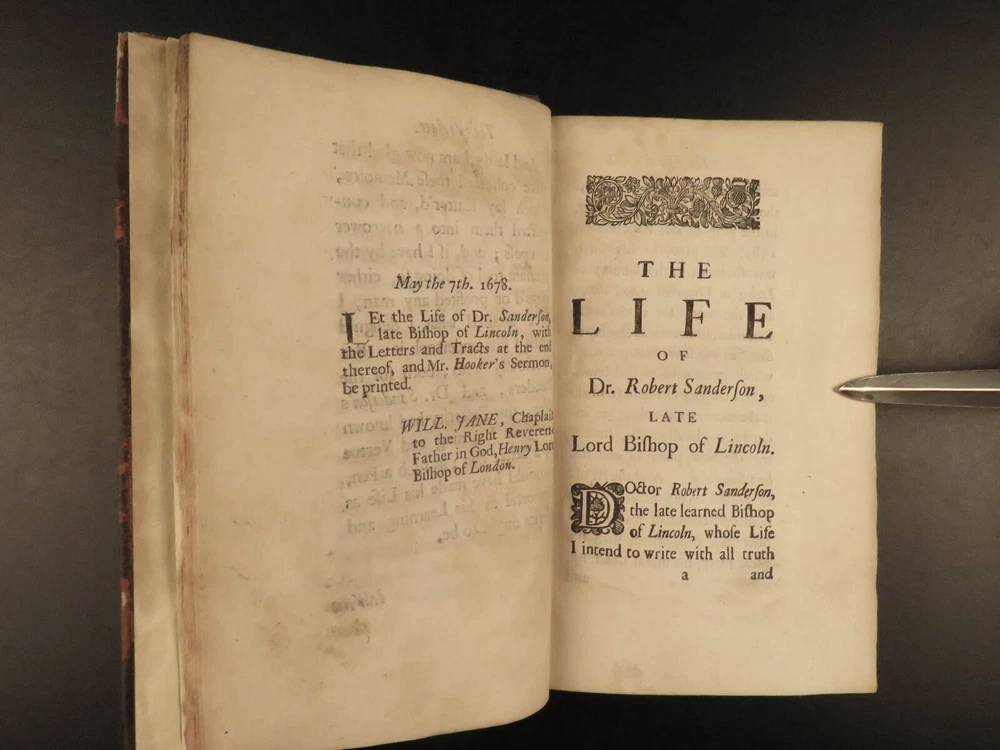 May the 7th. 1678.
LEt the Life of Dr. Sanderſon,
late Biſhop of Lincoln, with
the Letters and Tracts at the end
thereof, and Mr. Hooker's Sermon,
be printed.
WILL. JANE, Chaplai
to the Right Reveren
Father in God, Henry Lor
Biſhop of London.
THE
LIFE
OF
Dr. Robert Sanderſon,
LATE
Lord Biſhop of Lincoln.
DOctor Robert Sanderſon,
the late learned Biſhop
of Lincoln, whoſe Life
I intend to write with all truth
a and